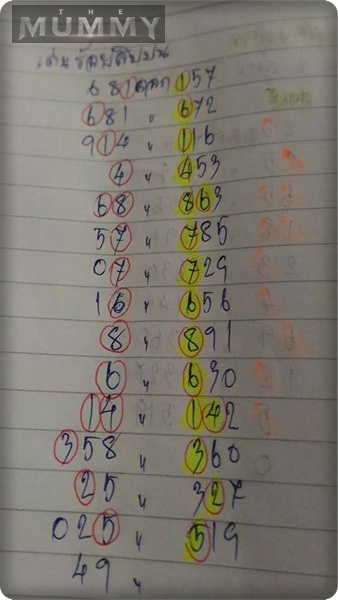 THE
MUMMY
เด่นร้อยสิบบน
681 ออก 157
681 " 672
914 " 116
4 " 453
68 " 863
57 " 785
07 " 729
16 " 656
8 " 891
6 " 630
14 " 142
358 " 360
25 " 327
025 " 519
49 "